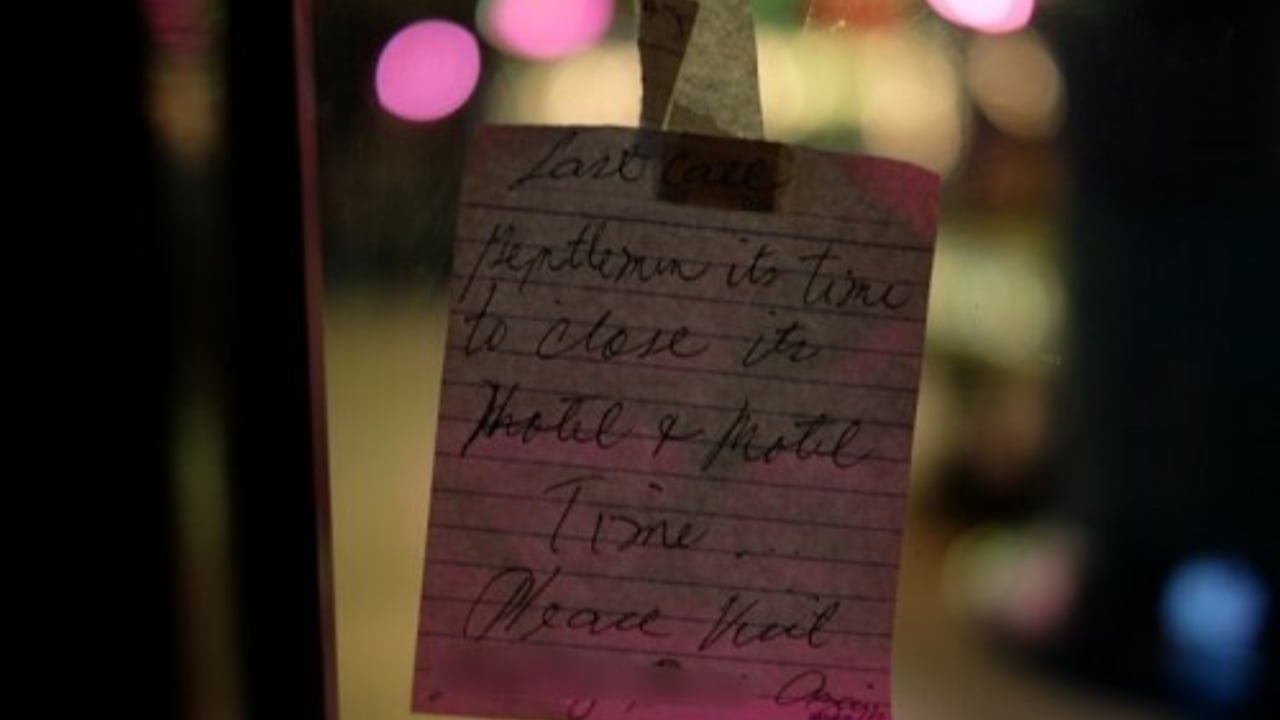 Last call
Gentlemen its time
to close its
Hotel & Motel
Time ...
Please Visit
Again